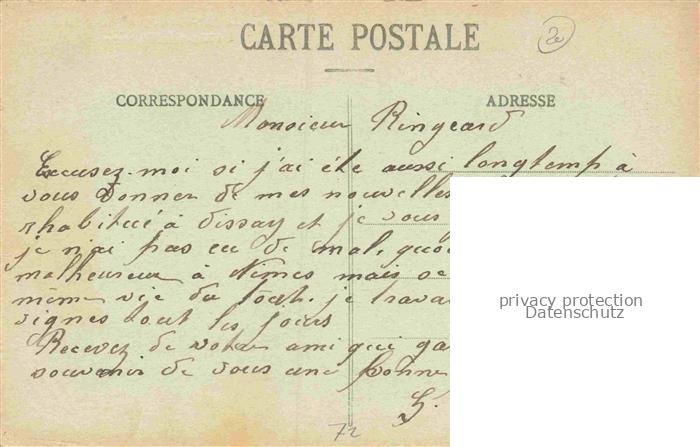 CARTE POSTALE
CORRESPONDANCE
ADRESSE
Monsieur Ringeard
Excusez-moi si j'ai été aussi longtemp à
vous donner de mes nouvelles
rhabitué à dissay et je vous
je n'ai pas eu de mal, quoi
malheureux à Nimes mais
même vie du tout. je trava
vignes tout les jours
Recevez de votre ami qui ga
souvenir de vous une bonne
72
privacy protection
Datenschutz